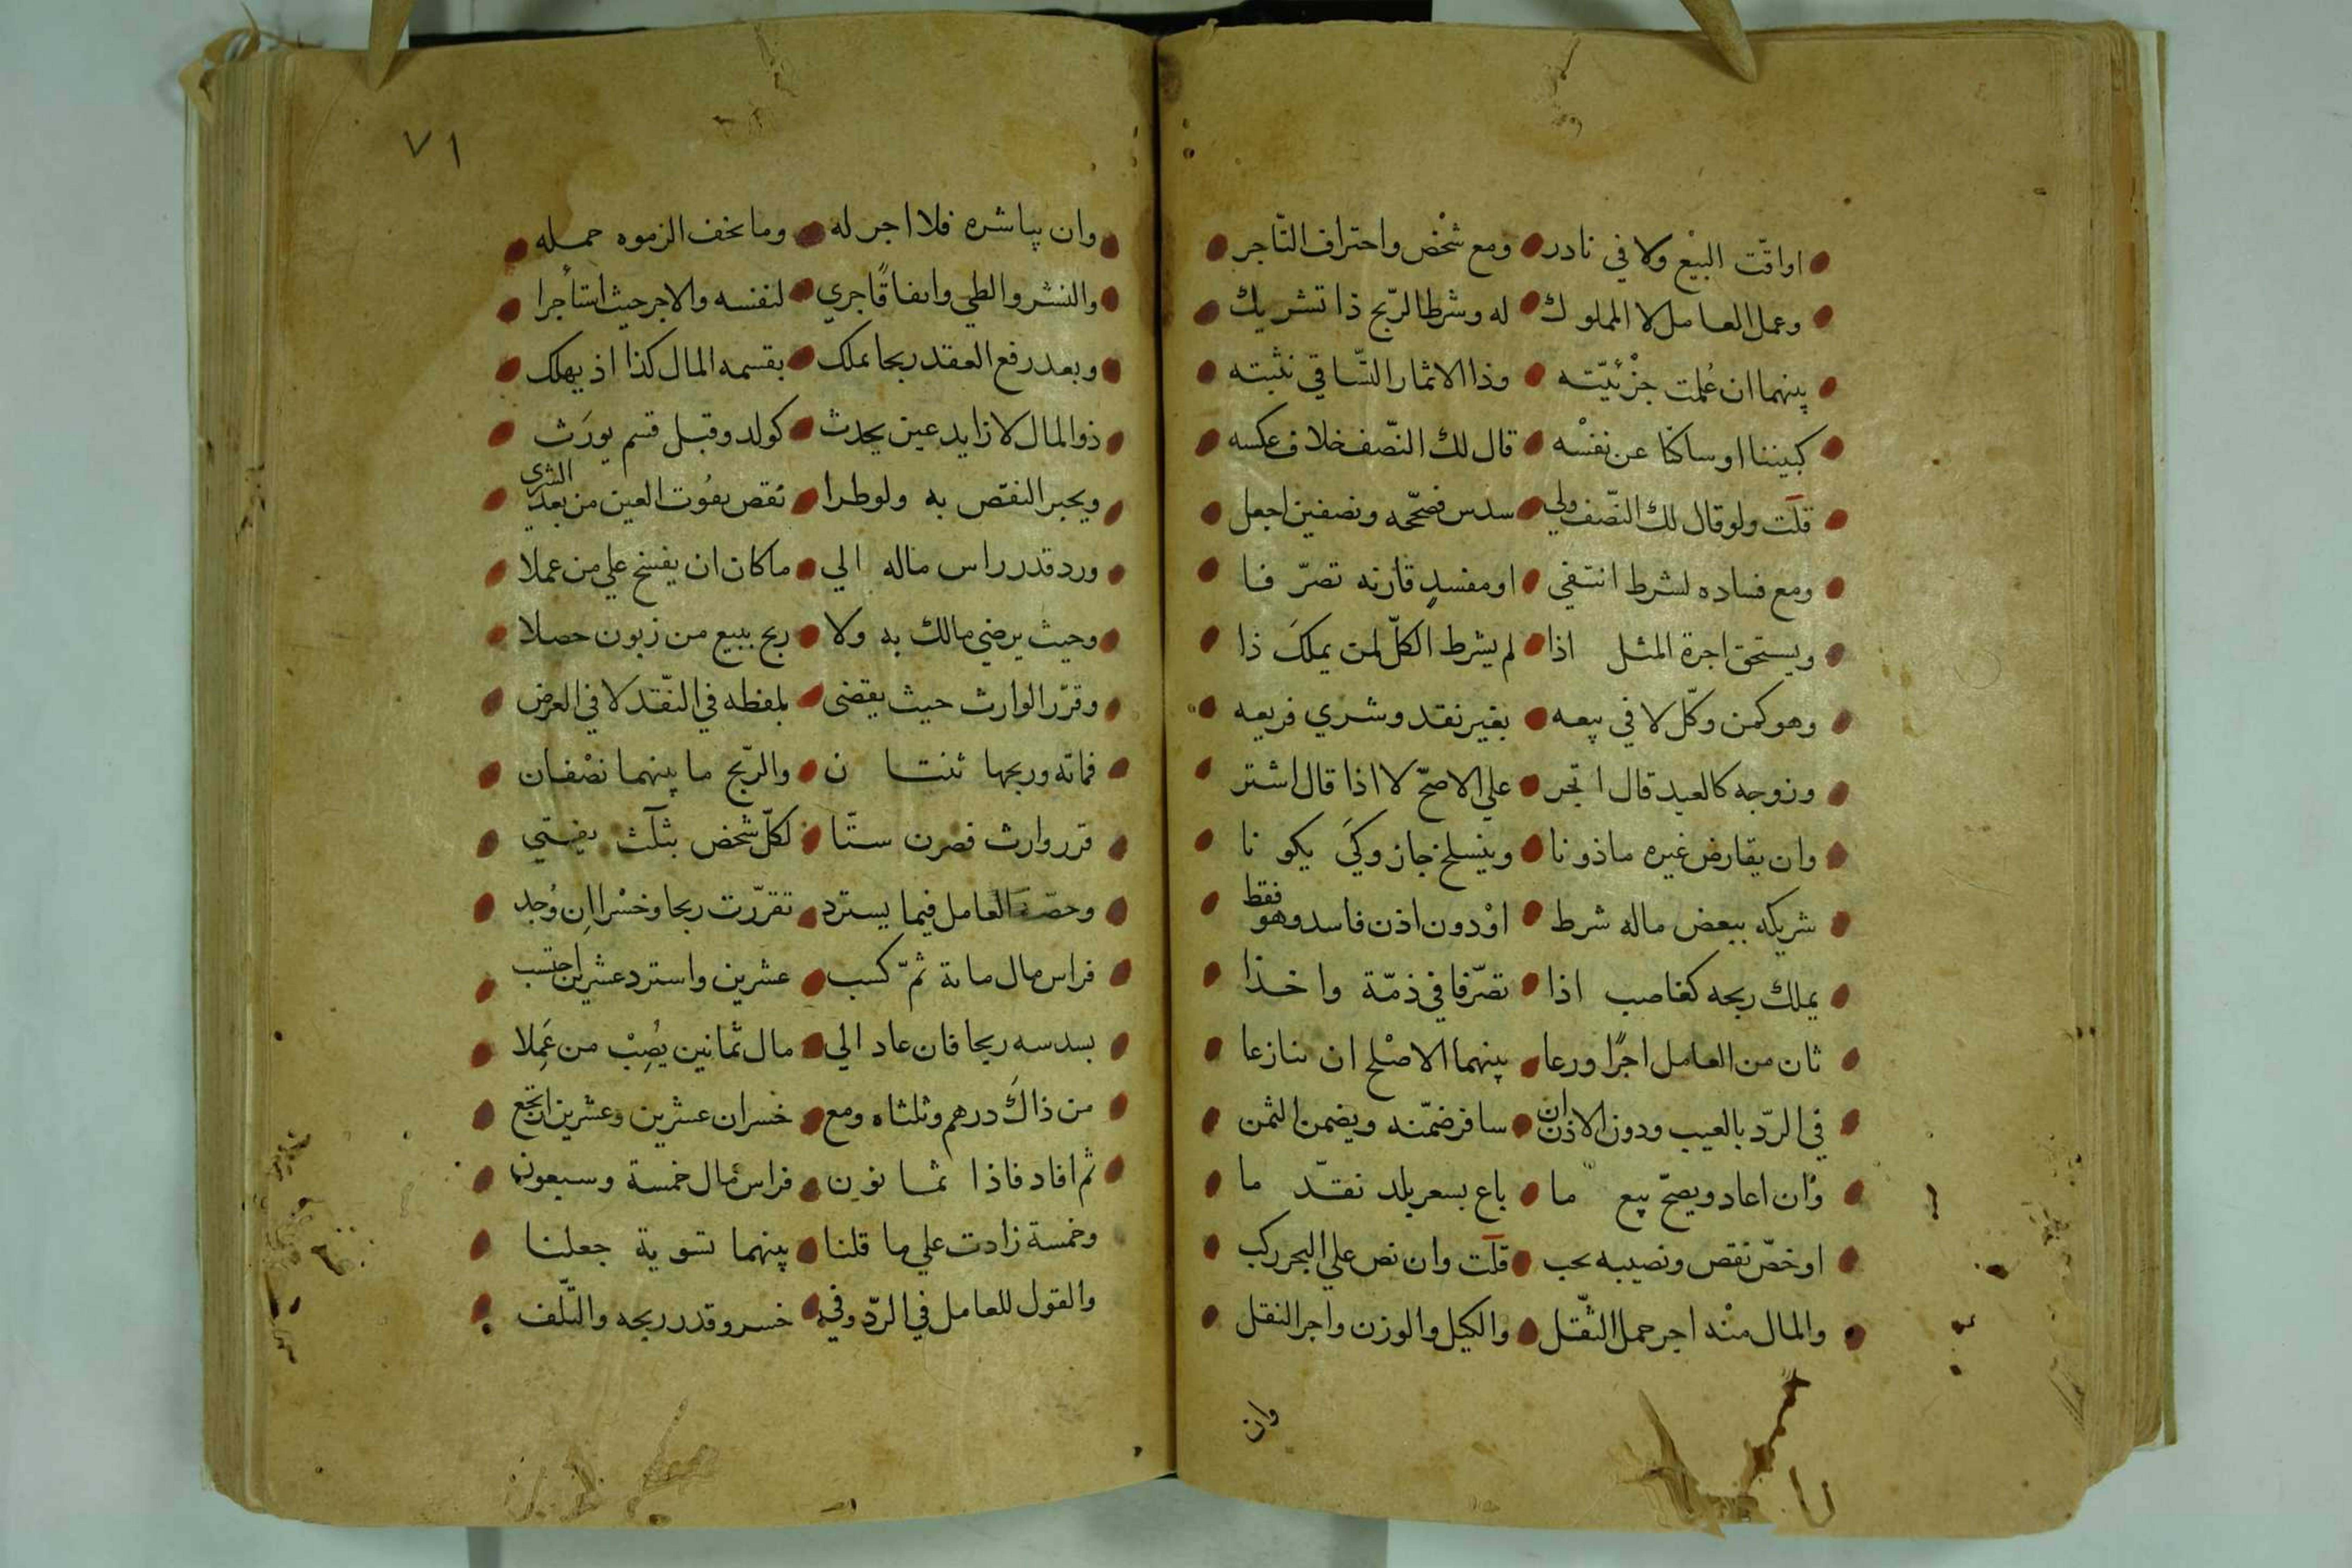 اواقّت البيْع ولا في نادر ومع شخْص واحتراف التّاجر
وعمل العامل لا المملوك له وشرط الرّبح ذا تشريك
بينهما ان عُلمت جزْئيّته وذا الاثمار السّاقي نثبته
كبيننا او ساكتا عن نفسْه قال لك النّصف خلاف عكسه
قلت ولو قال لك النّصف ولي سدس فصحّحه ونصفين اجعل
ومع فساده لشرط انتفي او مفسدٍ قارنه تصرّفا
ويستحق اجرة المثل اذا لم يشرط الكلّ لمن يملكَ ذا
وهو كمن وكّل لا في بيعه بغير نقد وشري فريعه
وزوجه كالعبد قال اتجر علي الاصحّ لا اذا قال اشتر
وان يقارض غيره ماذونا وينسلخ جاز وكَيَ يكونا
شريكه ببعض ماله شرط اوْ دون اذن فاسد وهو فقط
يملك ربحه كغاصب اذا تصّرفا في ذمّة واخذا
ثان من العامل اجرًا ورعا بينهما الاصْلح ان تنازعا
في الردّ بالعيب ودون الاذن ان سافر ضمّنه ويضمن الثمن
وان اعاد ويصحّ بيع ما باع بسعر بلد نقدّ ما
اوخصّ نقص ونصيبه يجب قلت وان نص علي البحر ركب
والمال منْه اجر حمل الثّقل والكيل والوزن واجر النقل
وان
٧١
وان يباشره فلا اجر له وما يخف الزموه حمله
والنشر والطي وانفاقًا جري لنفسه والاجر حيث استأجرا
وبعد رفع العقد ربحا يملك بقسمه المال كذا اذ يهلك
ذو المال لا زايد عين يحدث كولد وقبل قسم يورَث
ويجبر النقص به ولو طرا نقص بفوت العين من بعد الشرى
ورد قدر راس ماله الي ما كان ان يفسخ علي من عملا
وحيث يرضي مالك به ولا ربح ببيع من زبون حصلا
وقرّر الوارث حيث يقضى بلفظه في النّقد لا في العرض
فماته وربحها ئنتان والرّبح ما بينهما نصْفان
قرر وارث فصرن ستّا لكلّ شخص بثلث يفتي
وحصّة العامل فيما يسترد تقرّرت ربحا وخسْرا اِن وُجد
فراس مال مائة ثمّ كسب عشرين واسترد عشرين احتسب
بسدسه ربحا فان عاد الي مال ثمانين يُصِبْ من عَمِلا
من ذاكَ درهم وثلثاه ومع خسران عشرين وعشرين ارتجع
ثم افاد فاذا ثمانون فراس مال خمسة وسبعون
وخمسة زادت علي ما قلنا بينهما تسوية جعلنا
والقول للعامل في الردّ وفي خسر وقدر ربحه والتّلف